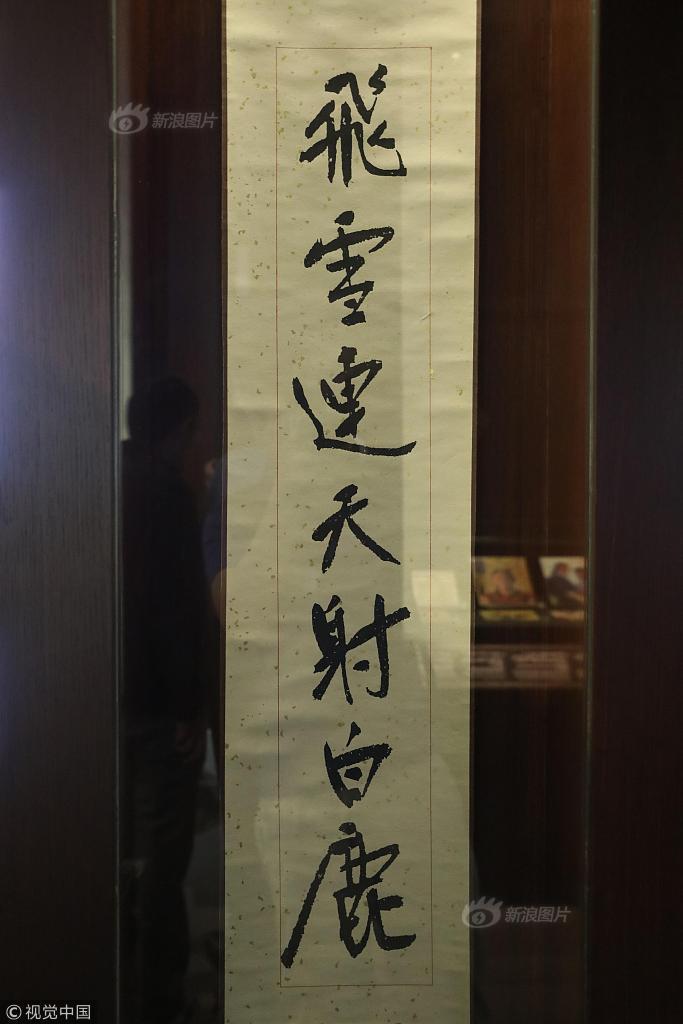 飛雪連天射白鹿
新浪图片
新浪图片
©视觉中国